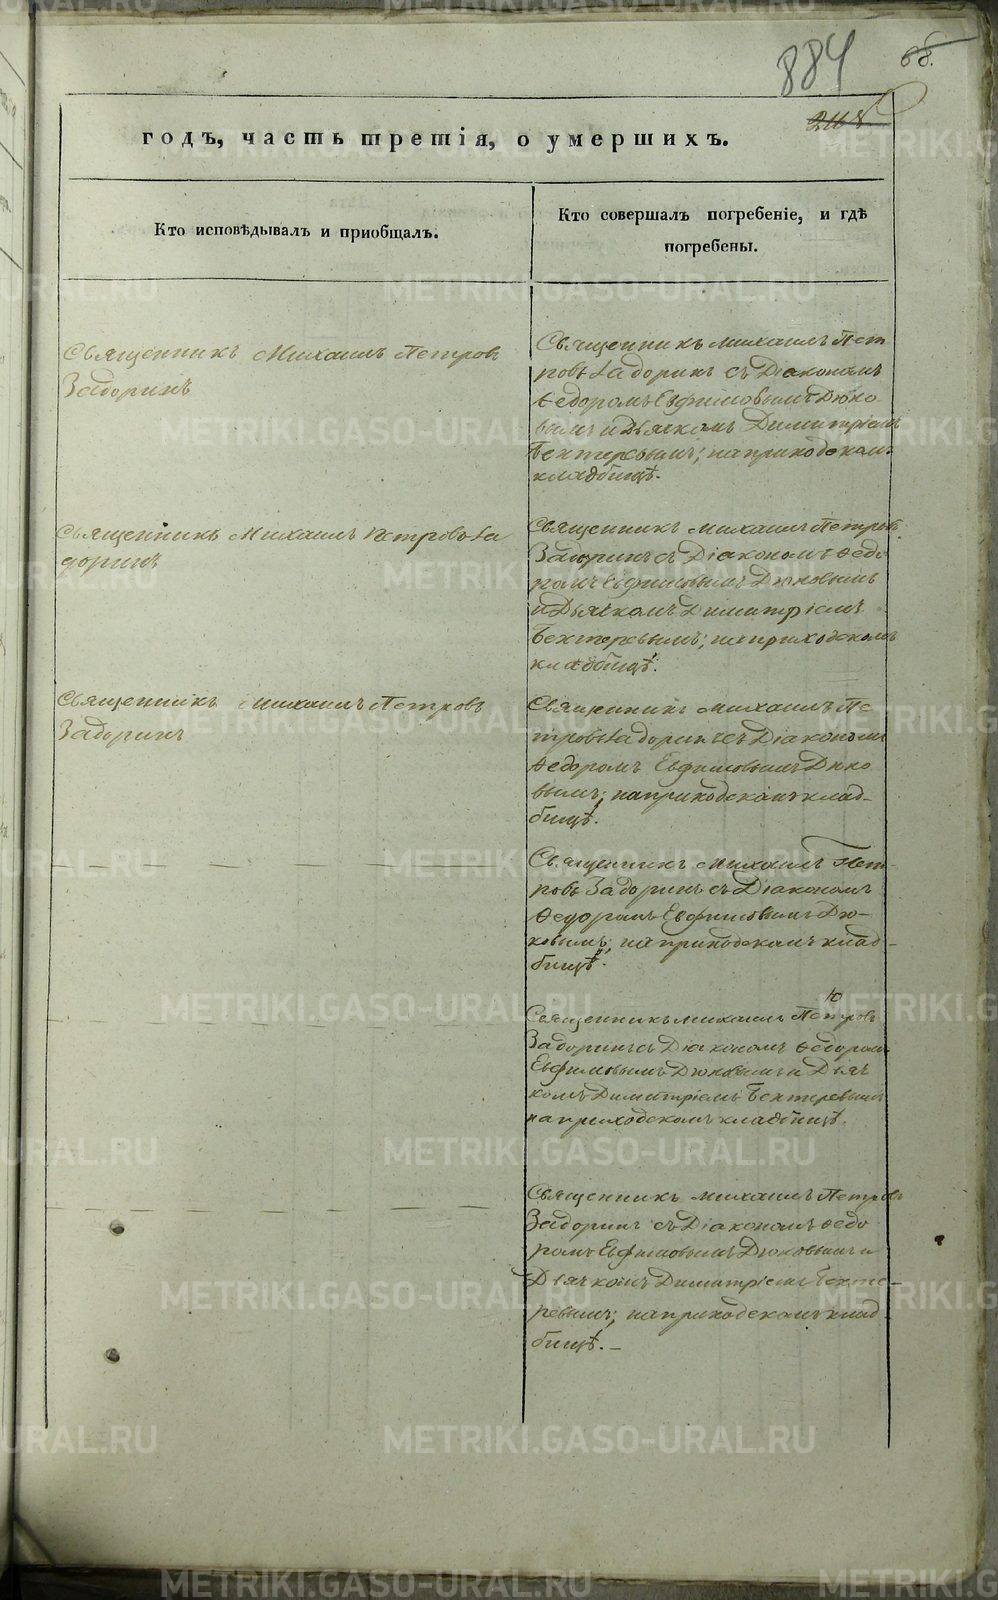 884
68.
годъ, часть третія, о умершихъ.
Кто исповѣдывалъ и приобщалъ.
Кто совершалъ погребеніе, и гдѣ
погребены.
Священникъ Михаилъ Петровъ
Задоринъ
Священникъ Михаилъ Пет
ровъ Задоринъ съ Діакономъ
Ѳедоромъ Евфимовымъ Дюко
вымъ и Дьячкомъ Димитріемъ
Бехтеревымъ; на приходскомъ
кладбищѣ.
Священникъ Михаилъ Петровъ За
доринъ
Священникъ Михаилъ Петровъ
Задоринъ съ Діакономъ Ѳедо
ромъ Евфимовымъ Дюковымъ
и Дьячкомъ Димитріемъ
Бехтеревымъ; на приходскомъ
кладбищѣ.
Священникъ Михаилъ Петровъ
Задоринъ
Священникъ Михаилъ Пе
тровъ Задоринъ съ Діакономъ
Ѳедоромъ Евфимовымъ Дюко
вымъ; на приходскомъ клад-
бищѣ.
Священникъ Михаилъ Пет-
ровъ Задоринъ съ Діакономъ
Ѳедоромъ Евфимовымъ Дю-
ковымъ; на приходскомъ клад-
бищѣ.
Священникъ Михаилъ Петровъ
Задоринъ съ Діакономъ Ѳедоромъ
Евфимовымъ Дюковымъ и Дьяч
комъ Димитріемъ Бехтеревымъ
на приходскомъ кладбищѣ.
Священникъ Михаилъ Петровъ
Задоринъ съ Діакономъ Ѳедо
ромъ Евфимовымъ Дюковымъ и
Дьячкомъ Димитріемъ Бехте-
ревымъ; на приходскомъ клад
бищѣ.
METRIKI.GASO-URAL.RU